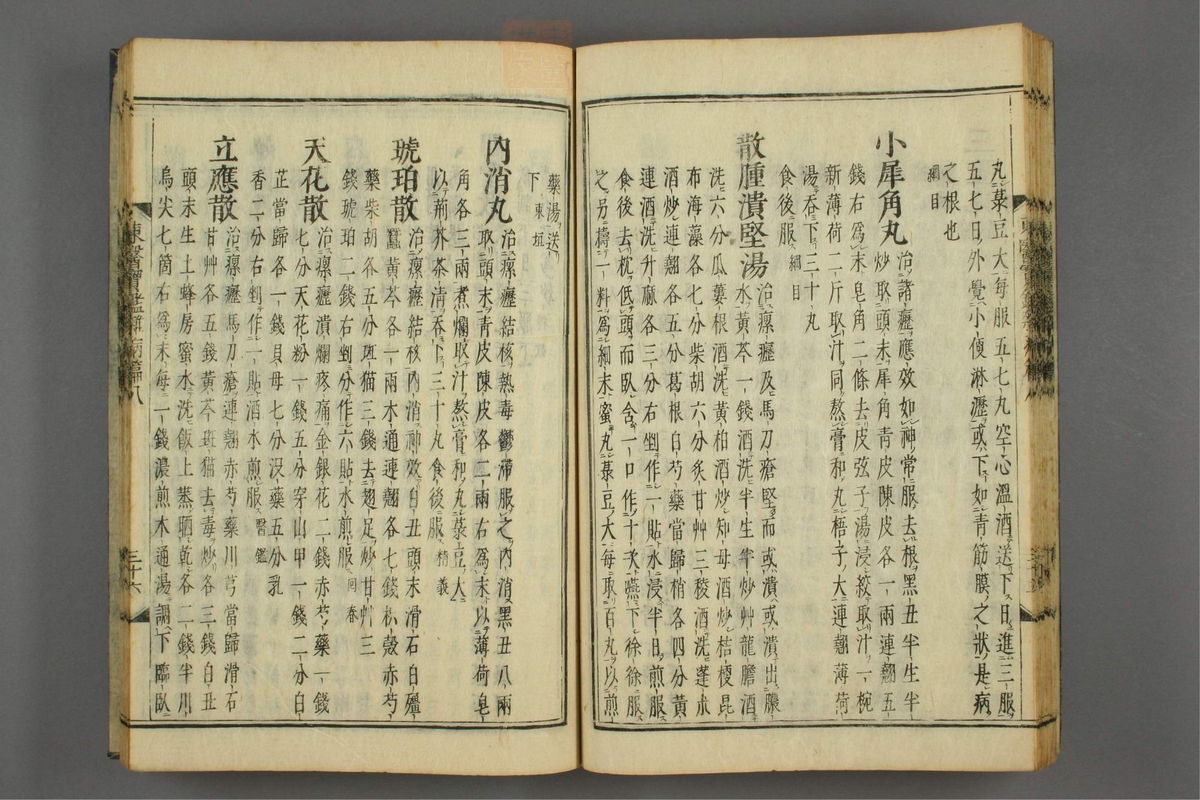 丸菉豆大每服五七丸空心溫酒送下日進三服
五七日外覺小便淋瀝或下如靑筋膜之狀是病
之根也
綱目
小犀角丸 治諸癧應效如神常服去根黑丑半生半
炒取頭末犀角靑皮陳皮各一兩連翹五
錢右爲末皂角二條去皮弦子湯浸絞取汁一椀
新薄荷二斤取汁同熬膏和丸梧子大連翹薄荷
湯吞下三十丸
食後服綱目
散腫潰堅湯 治瘰癧及馬刀瘡堅而或潰或潰出膿
水黃芩一錢酒洗半生半炒艸龍膽酒
洗六分瓜蔞根酒洗黃柏酒炒知母酒炒桔梗昆
布海藻各五分柴胡六分炙甘艸三稜酒洗蓬朮
酒炒連翹各五分葛根白芍藥當歸梢各四分黃
連酒洗升麻各三分右剉作一貼水浸半日煎服
食後去枕低頭而臥含一口作十次嚥下徐徐服
之另擣一料爲細末蜜丸菉豆大每取百丸以煎
藥湯送
下東垣
內消丸 治瘰癧結核熱毒鬱滯服之內消黑丑八兩
取頭末靑皮陳皮各二兩右爲末以薄荷皂
角各三兩煮爛取汁熬膏和丸菉豆大
以荊芥茶清吞下三十丸食後服精義
琥珀散 治瘰癧結核內消神效白丑頭末滑石白殭
蠶黃芩各一兩木通連翹各七錢枳殼赤芍
藥柴胡各五分斑猫三錢去翅足炒甘艸三
錢琥珀二錢右剉分作六貼水煎服回春
天花散 治瘰癧潰爛疼痛金銀花二錢赤芍藥一錢
七分天花粉一錢五分穿山甲一錢二分白
芷當歸各一錢貝母七分沒藥五分乳
香二分右剉作一貼酒水煎服醫鑑
立應散 治瘰癧馬刀瘡連翹赤芍藥川芎當歸滑石
甘艸各五錢黃芩斑猫去毒炒各三錢白丑
頭末生土蜂房蜜水洗飯上蒸晒乾各二錢半川
烏尖七箇右爲末每一錢濃煎木通湯調下臨臥
東醫寶鑑雜病篇八
三十六